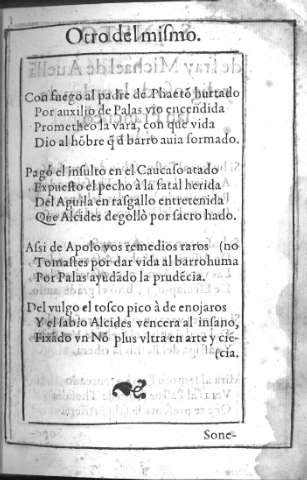 Otro del mismo.
Con fuego al padre de Phaetõ hurtado
Por auxilio de Palas vio encendida
Prometheo la vara, con que vida
Dio al hõbre q̃ d̃ barro auia formado.
Pagó el insulto en el Caucaso atado
Expuesto el pecho à la fatal herida
Del Aguila en rasgallo entretenida
Que Alcides degollò por sacro hado.
Assi de Apolo vos remedios raros (no
Tomastes por dar vida al barro huma
Por Palas ayudãdo la prudẽcia.
Del vulgo el tosco pico à de enojaros
Y el sabio Alcides vencera al insano,
Fixãdo vn Nõ plus vltra en arte y cie-
cia.
Sone-